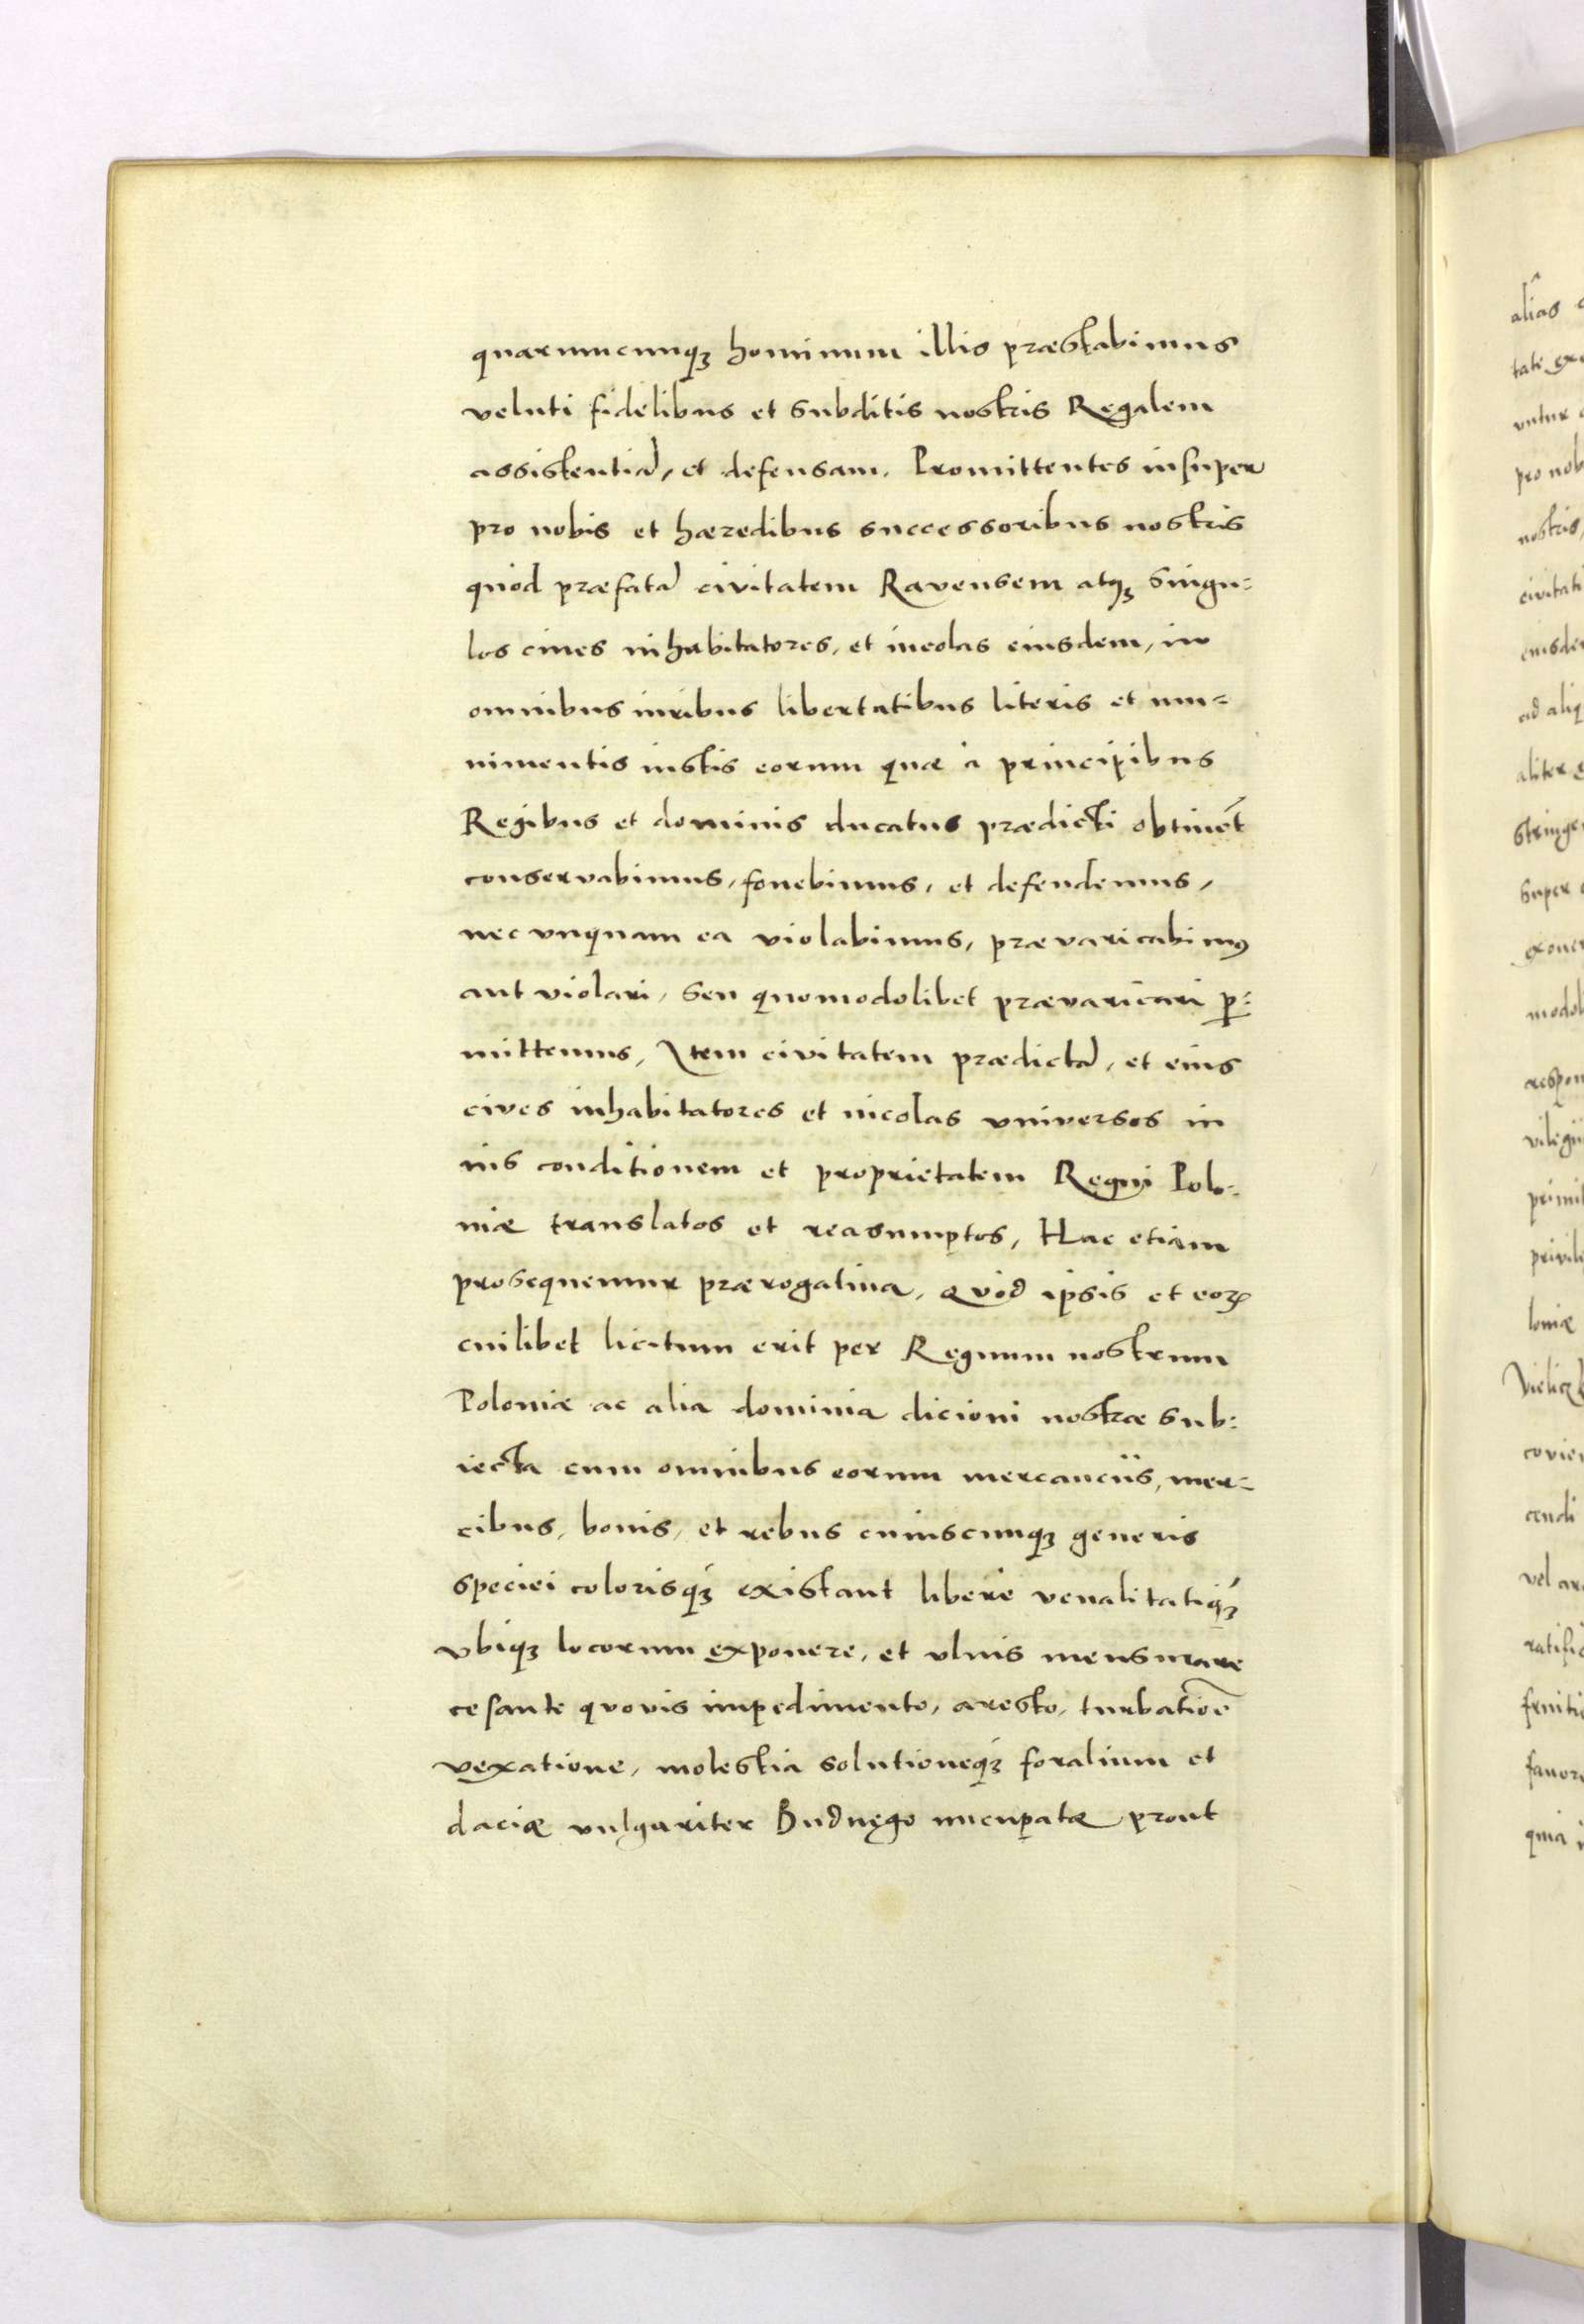 quarumcunqꝫ hominum illis præstabimus
veluti fidelibus et subditis nostris Regalem
assistentiā, et defensam. Promittentes insuper
pro nobis et hæredibus successoribus nostris
quod præfatā civitatem Ravensem atqꝫ singu:
los ciues inhabitatores, et incolas eiusdem, in
omnibus iuribus libertatibus literis et mu=
nimentis iustis eorum quæ à principibus
Regibus et dominis ducatus prædicti obtinēt
conservabimus, fouebimus, et defendemus,
nec vnquam ea violabimus, prævaricabimꝰ
aut violari, seu quomodolibet prævaricari ꝑ:
mittemus, Item civitatem prædictā, et eius
cives inhabitatores et incolas vniversos in
ius conditionem et proprietatem Regni Polo:
niæ translatos et reasumptos, Hac etiam
prosequemur prærogatiua, Quod ipsis et eoꝝ
cuilibet licitum erit per Regnum nostrum
Poloniæ ac alia dominia dicioni nostræ sub:
iecta cum omnibus eorum mercanciis, mer=
cibus, bonis, et rebus cuiuscunqꝫ generis
speciei colorisqꝫ́ existant liberè venalitatiqꝫ́
vbiqꝫ locorum exponere, et vlnis mensurare
cesante quovis impedimento, aresto, turbatioē
vexatione, molestia solutioneqꝫ́ foralium et
daciæ vulgariter Budnęgo nucupatæ prout
alias
tate
vntur
pro nob
nostris,
civitati
eiusde
ad aliq
aliter
stringe
super
exone
modol
respon
vilegii
primi
privile
loniæ
covien
cendi
vel
ratifi
fruiti
favor
quia